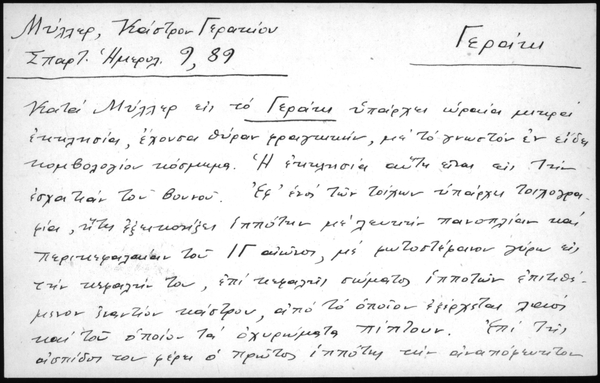 Μύλλερ, Κάστρον Γερακίου
Σπαρτ. Ἡμερολ. 9, 89
Γεράκι
Κατά Μύλλερ εἰς τό Γεράκι ὑπάρχει ὡραία μικρά
ἐκκλησία, ἔχουσα θύραν φραγκικήν, μέ τό γνωστόν ἐν εἴδει
κομβολογίου κόσμημα. Ἡ ἐκκλησία αὕτη εἶναι εἰς τήν
ἐσχατιάν τοῦ βουνοῦ. Ἐφ' ἑνός τῶν τοίχων ὑπάρχει τοιχογρα-
φία, ἥτις ἐξεικονίζει ἱππότην μέ λευκήν πανοπλίαν καί
περικεφαλαίαν τοῦ ΙΓ αἰῶνος, μέ φωτοστέφανον γύρω εἰς
τήν κεφαλήν του, ἐπί κεφαλῆς σώματος ἱπποτῶν ἐπιτιθέ-
μενον ἐναντίον κάστρου, ἀπό τό ὁποῖον ἐξέρχεται λαός
καί τοῦ ὁποίου τά ὀχυρώματα πίπτουν. Ἐπί τῆς
ἀσπίδος του φέρει ὁ πρῶτος ἱππότης τήν ἀναπόφευκτον